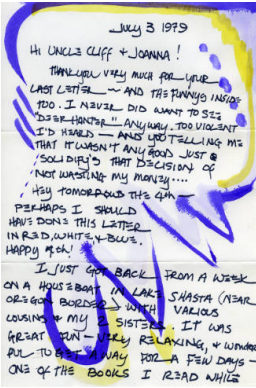 JULY 3 1979
HI UNCLE CLIFF & JOANNA!
THANK YOU VERY MUCH FOR YOUR
LAST LETTER — AND THE FUNNYS INSIDE
TOO. I NEVER DID WANT TO SEE
"DEERHUNTER" ANYWAY. TOO VIOLENT
I'D HEARD — AND YOU TELLING ME
THAT IT WASN'T ANY GOOD JUST
SOLIDIFY'S THAT DECISION OF
NOT WASTING MY MONEY....
HEY TOMORROW THE 4TH —
PERHAPS I SHOULD
HAVE DONE THIS LETTER
IN RED, WHITE & BLUE.
HAPPY 4TH!
I JUST GOT BACK FROM A WEEK
ON A HOUSEBOAT IN LAKE SHASTA (NEAR
OREGON BORDER) WITH VARIOUS
COUSINS & MY 2 SISTERS. IT WAS
GREAT FUN — VERY RELAXING, & WONDER
FUL TO GET AWAY FOR A FEW DAYS —
ONE OF THE BOOKS I READ WHILE